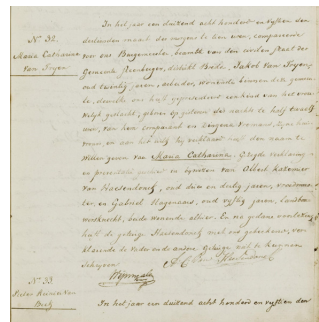 N° 32.
Maria Catharina
van Tryen
In het jaar een duizend acht honderd en vyftien den
maart des morgens te tien uren, compareerde
voor ons Burgemeester, beambte van den civilen staat der
Gemeente district Breda, Jakob van Tryen
oud twintig jaren, arbeider, wonende binnen deze gemeen-
te, dewelke ons heeft gepresenteerd een kind van het vrou-
welyk geslacht, geboren op gisteren des nachts te half twaalf
uur, van hem comparant en zyne huis-
vrouw, en aan het welk hy verklaard heeft den naam te
willen geven van Maria Catharina. Gezegde verklaring
en presentatie gedaan in bywezen van Albert
van Haesendonck, oud drie en dertig jaren,
en Gabriel Hagenaars, oud vyftig jaren,
beide wonende alhier. En na gedane voorlezing
heeft de getuige Haesendonck met ons geteekend, ver-
klarende de Vader en de andere Getuige niet te kunnen
Schryven
N° 33.
In het jaar een duizend acht honderd en vyftien den